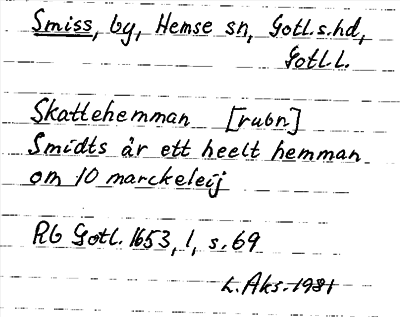 Smiss, by, Hemse sn, Gotl.s.hd,
Gotl.l.
Skattehemman [rubr.]
Smidts är ett heelt hemman
om 10 marckeleij
RG Gotl. 1653, 1, s. 69
L. Aks. 1981